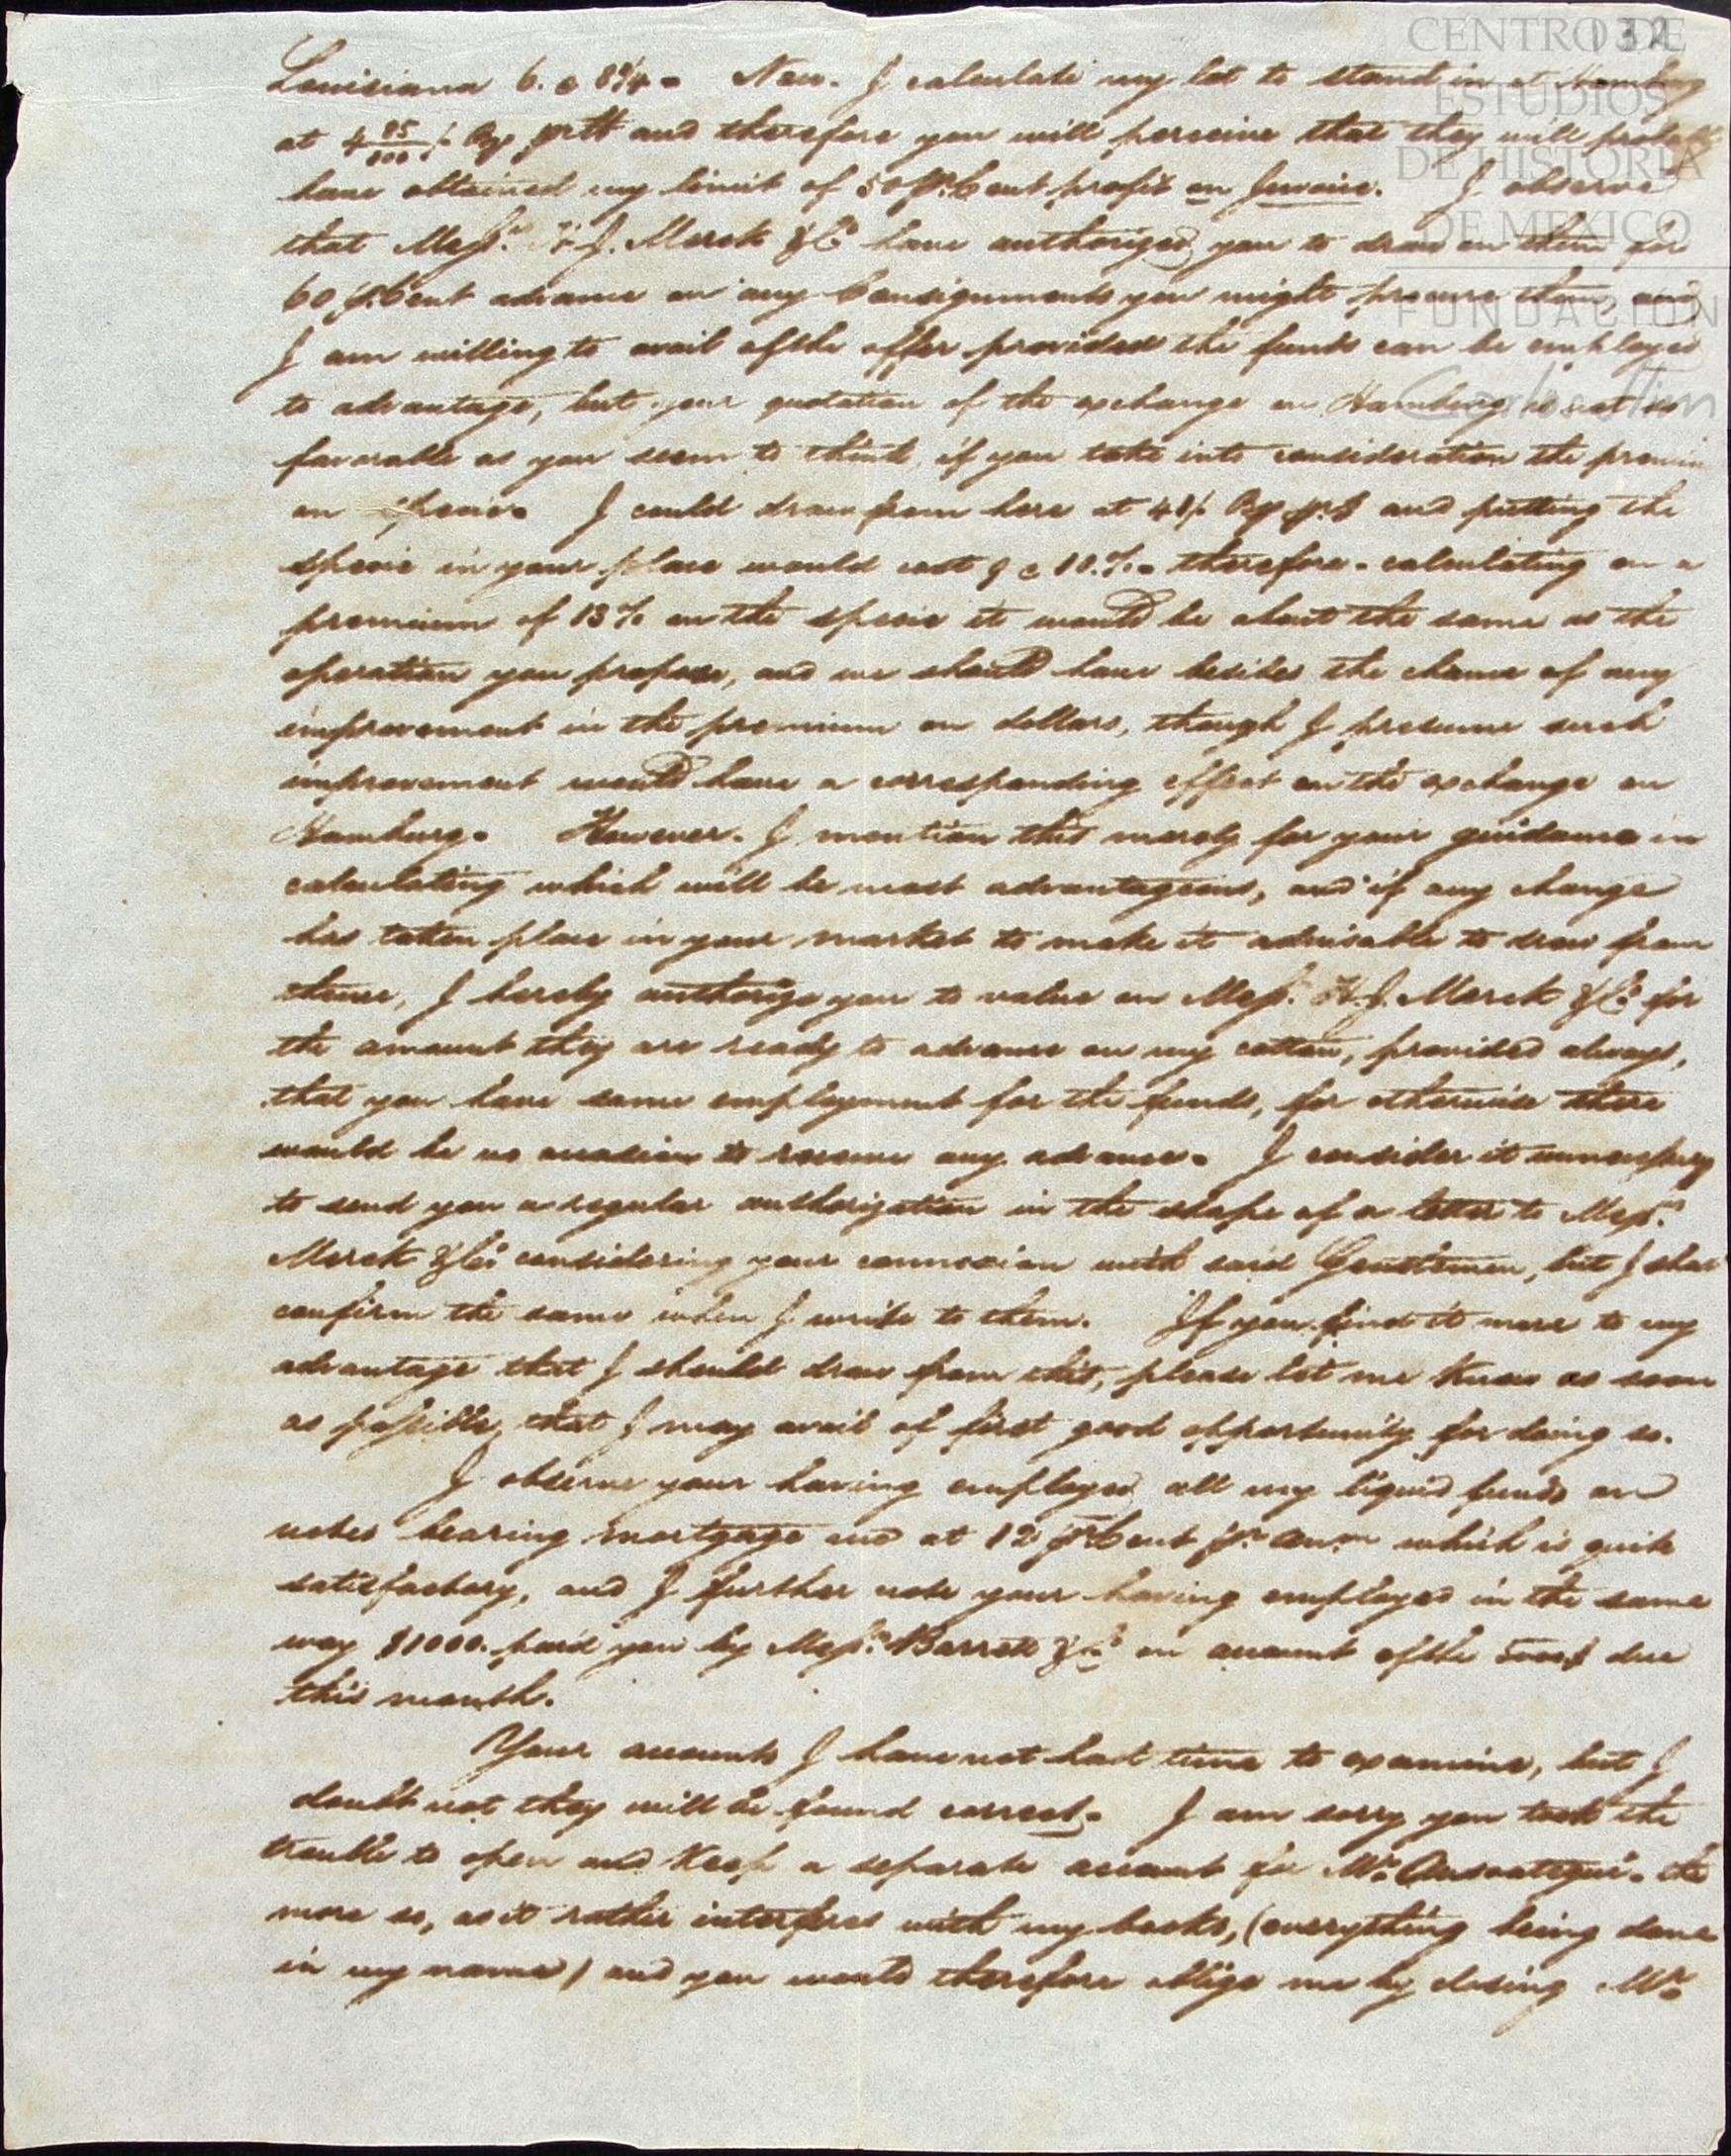 132
CENTRO DE
ESTUDIOS
DE HISTORIA
DE MEXICO
FUNDACIÓN
Carlos Slim
Louisiana 6. a 8¾. Now. I calculate my lot to stand in at Hamburg
at 4 85/100 and therefore you will perceive that they will
have obtained my limit of 50 pr. Cent profit on Invoice. I observe
that Messrs. H. J. Merck & Co. have authorized you to draw on them for
60 pr. Cent advance on any Consignments you might procure them, and
I am willing to avail of the offer provided the funds can be employed
to advantage, but your quotation of the exchange on Hamburg is not so
favorable as you seem to think, if you take into consideration the
on specie. I could draw from here at and putting the
specie in your place would cost 9 a 10 %. therefore. calculating on a
premium of 13 % on the specie it would be about the same as the
operation you propose, and we should have besides the chance of any
improvement in the premium on dollars, though I presume such
improvement would have a corresponding effect on the exchange on
Hamburg. However. I mention this merely for your guidance in
calculating which will be most advantageous, and if any change
has taken place in your market to make it advisable to draw from
thence, I hereby authorize you to value on Messrs. H. J. Merck & Co. for
the amount they are ready to advance on my cotton, provided always,
that you have some employment for the funds, for otherwise there
would be no occasion to receive any advance. I consider it unnecessary
to send you a regular authorization in the shape of a letter to Messrs.
Merck & Co. considering your connexion with said Gentlemen, but I shall
confirm the same when I write to them. If you find it more to my
advantage that I should draw from this, please let me know as soon
as possible, that I may avail of first good opportunity for doing so.
I observe your having employed all my liquid funds on
notes bearing mortgage and at 12 pr. Cent pr. Ann. which is quite
satisfactory, and I further note your having employed in the same
way $1000. paid you by Messrs. Barrett & Co. on account of the 5000$ due
this month.
Your accounts I have not had time to examine, but I
doubt not they will be found correct. I am sorry you took the
trouble to open and keep a separate account for Mr. Ansoategui. the
more so, as it rather interferes with my books, (everything being done
in my name) and you would therefore oblige me by closing Mr.